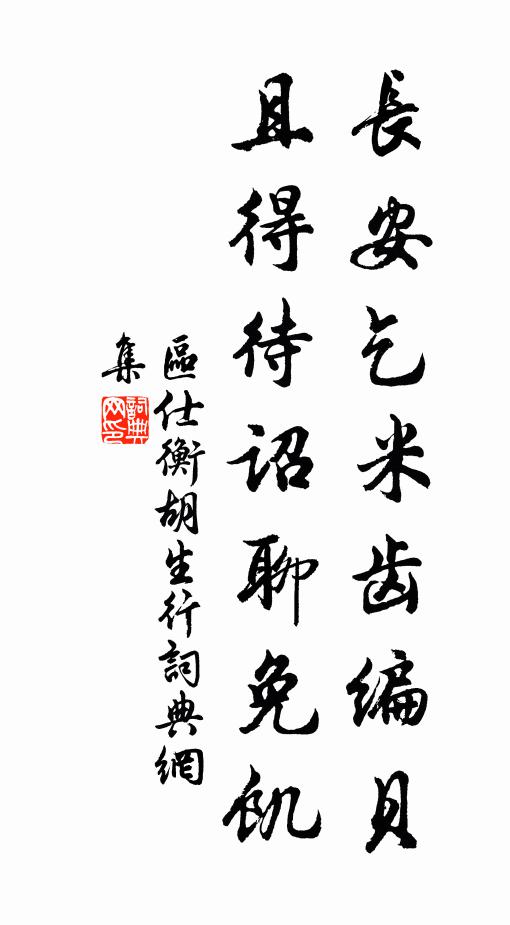 長安乞米齿编貝
且得待詔聊免飢
區仕衡胡生行詞典網
集
詞典
网印